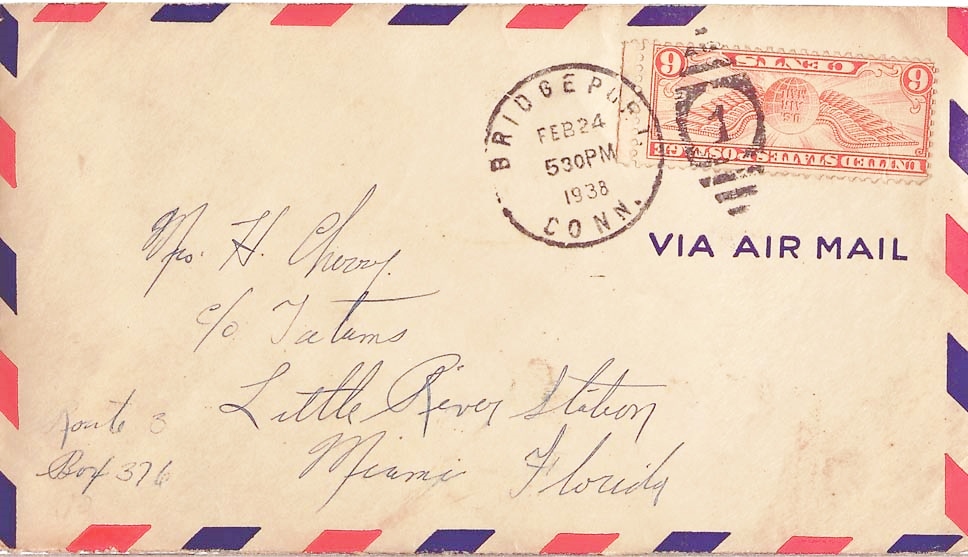 BRIDGEPORT
FEB 24
530 PM
1938
CONN.
1
6 CENTS 6
U.S.
AIR
MAIL
UNITED STATES POSTAGE
VIA AIR MAIL
Mrs. H. Cherry.
c/o Tatums
Little River Station
Miami Florida
Route 3
Box 376